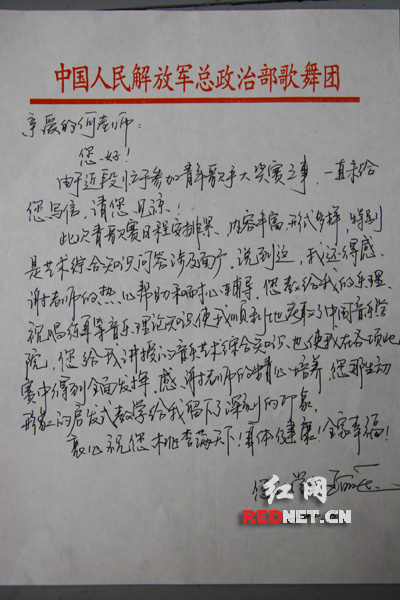 中国人民解放军总政治部歌舞团
亲爱的何老师：
您好！
由于近段忙于参加青年歌手大奖赛之事，一直未给
您写信，请您见谅！
此次青歌赛日程安排紧、内容丰富、形式多样，特别
是艺术综合知识问答涉及面广，说到这，我还得感
谢老师的热心帮助和精心辅导，您教给我的乐理、
视唱练耳等音乐理论知识使我顺利地考取了中国音乐学
院，您给我讲授的音乐艺术综合知识也使我在各项比
赛中得到全面发挥，感谢老师的精心培养，您那生动
形象的启发式教学给我留下了深刻的印象。
衷心祝您桃李满天下！身体健康！全家幸福！
您学
红网
REDNET.CN